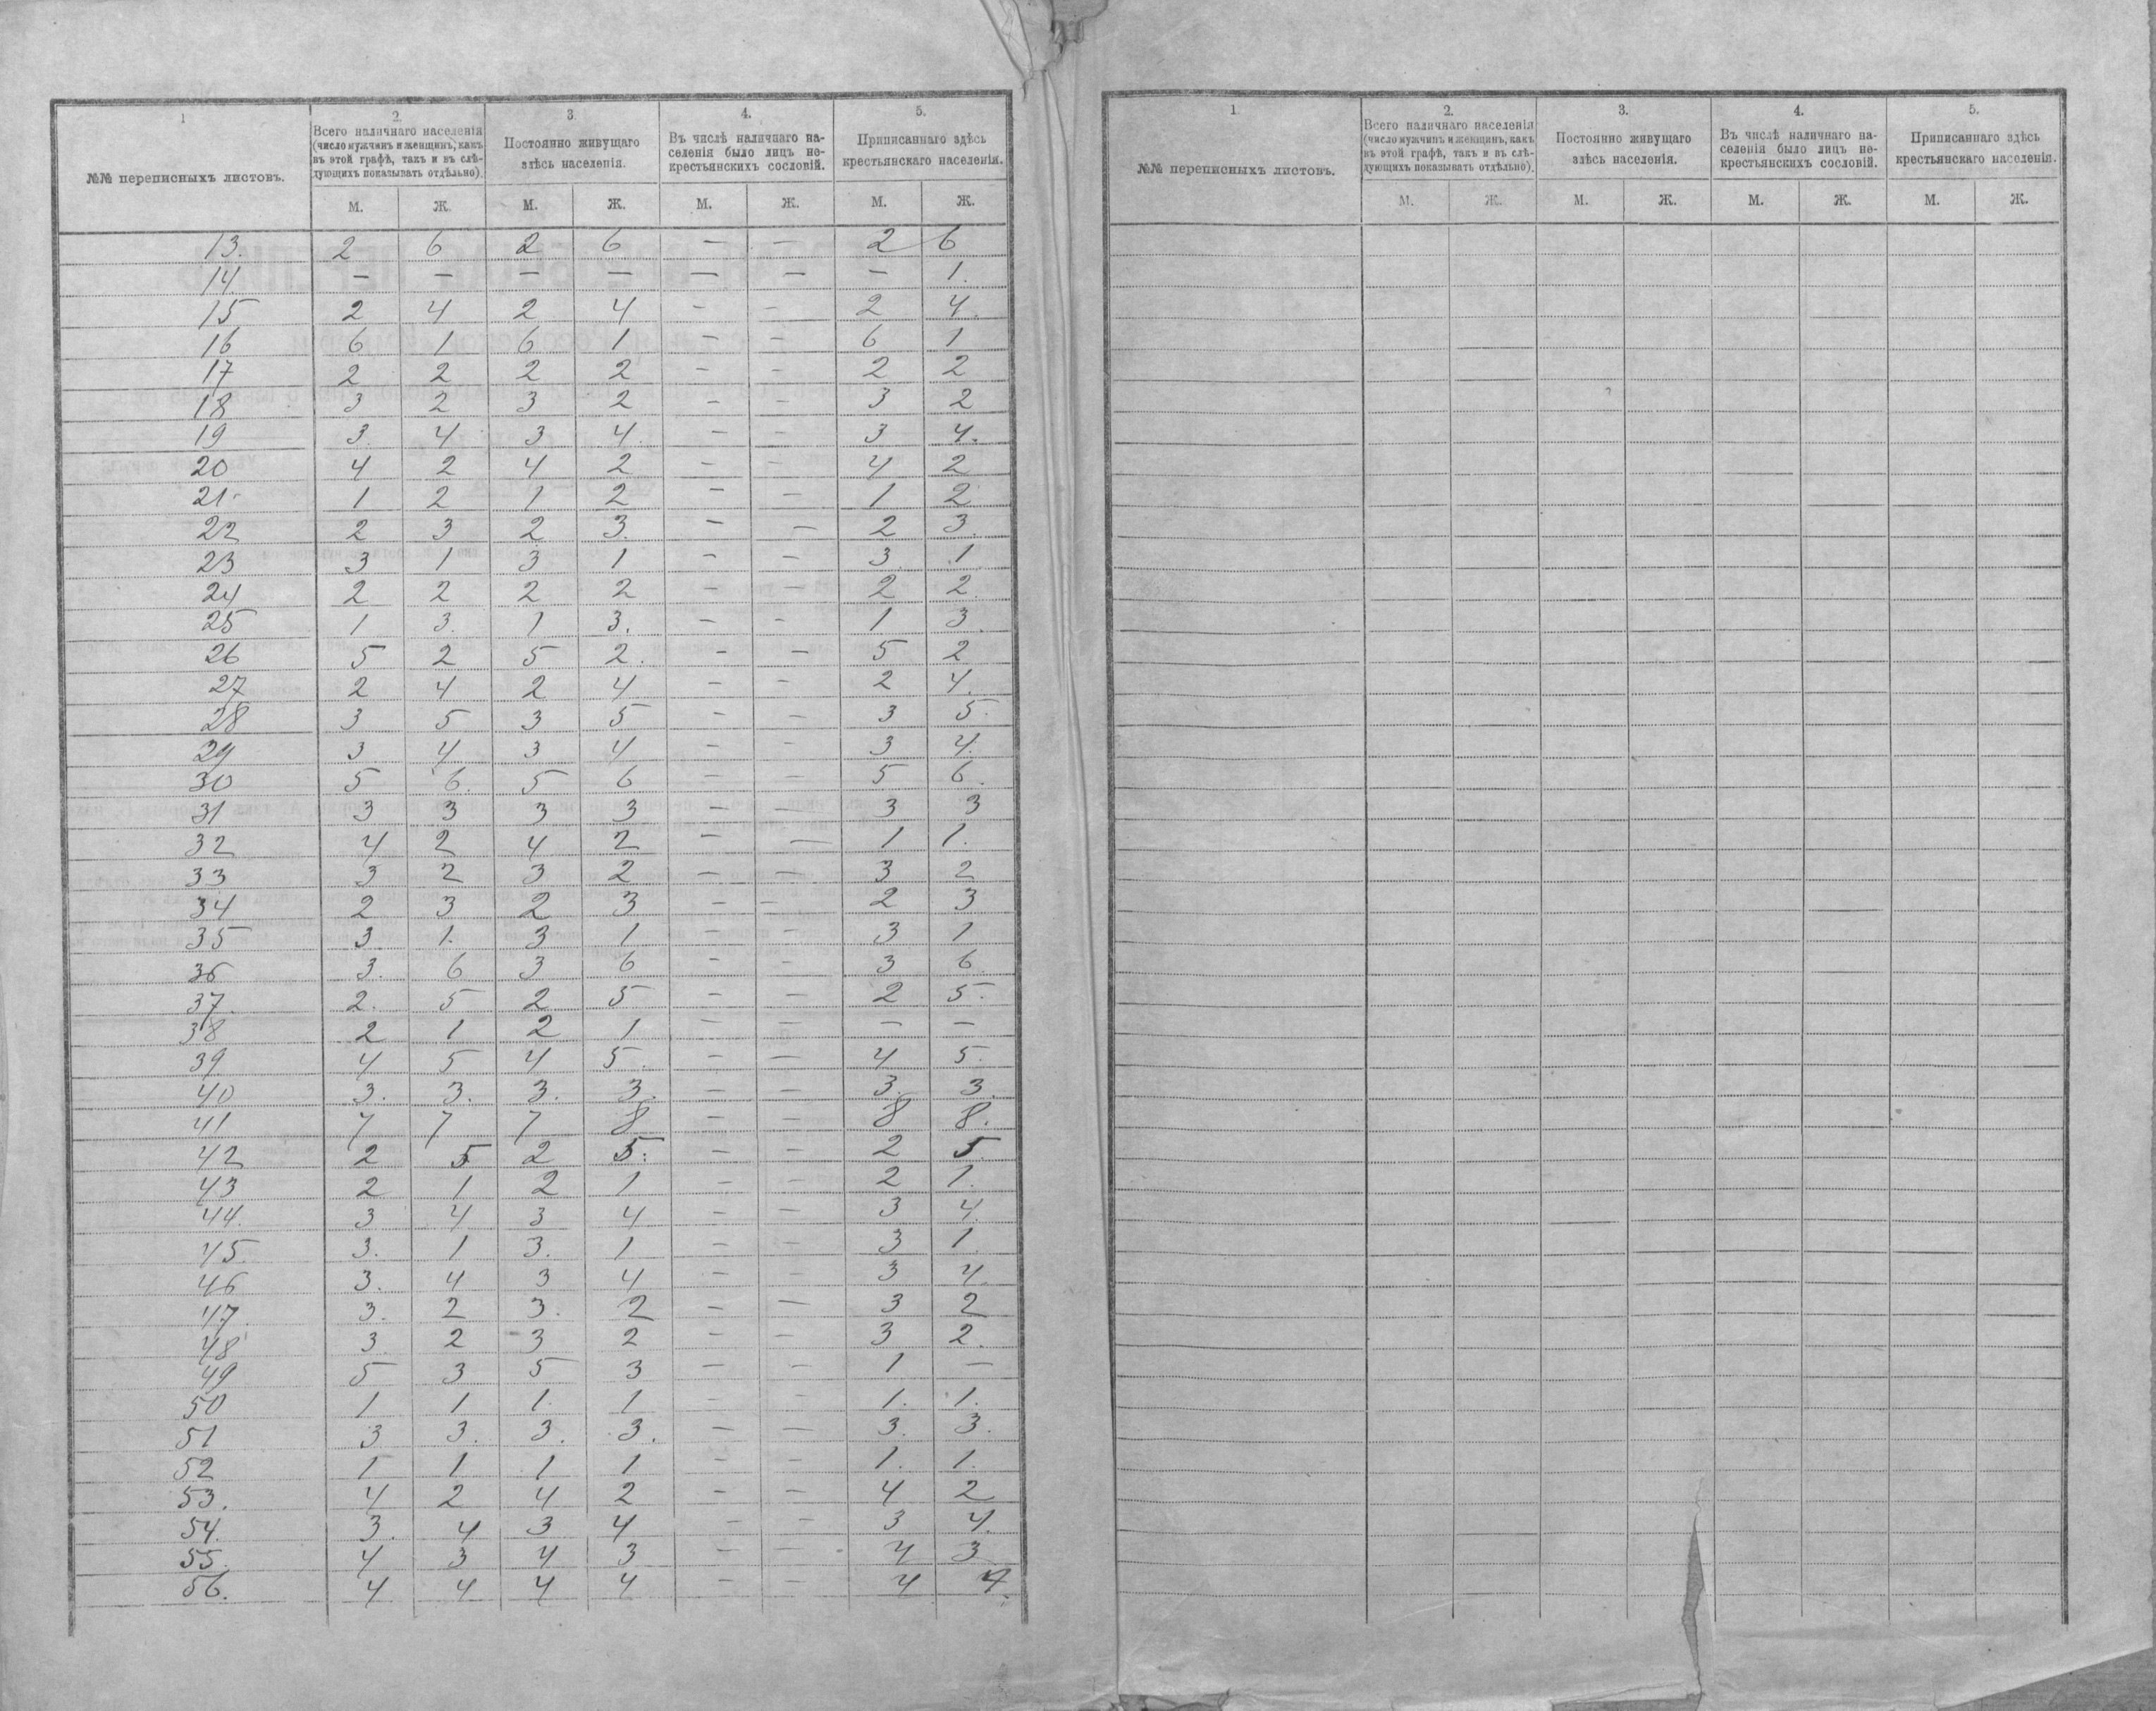 1 2. 3. 4. 5.
№№ переписныхъ листовъ.
Всего наличнаго населенія
(число мужчинъ и женщинъ, какъ
въ этой графѣ, такъ и въ слѣ-
дующихъ показывать отдѣльно).
Постоянно живущаго
здѣсь населенія.
Въ числѣ наличнаго на-
селенія было лицъ не-
крестьянскихъ сословій.
Приписаннаго здѣсь
крестьянскаго населенія.
М. Ж. М. Ж. М. Ж. М. Ж.
13. 2 6 2 6 — — 2 6
14 — — — — — — — 1.
15 2 4 2 4 — — 2 4.
16 6 1 6 1 — — 6 1
17 2 2 2 2 — — 2 2
18 3 2 3 2 — — 3 2
19 3. 4 3 4. — — 3 4.
20 4 2 4 2 — — 4 2
21 1 2 1 2 — — 1 2
22 2 3 2 3. — — 2 3.
23 3 1 3 1 — — 3 1
24 2 2 2 2 — — 2 2.
25 1 3. 1 3. — — 1 3.
26 5 2 5 2. — — 5 2
27 2 4 2 4 — — 2 4.
28 3 5 3 5 — — 3 5.
29 3 4 3 4 — — 3 4.
30 5 6. 5 6 — — 5 6.
31 3 3 3 3 — — 3 3
32 4 2 4 2 — — 1 1.
33 3 2 3 2 — — 3 2
34 2 3 2 3 — — 2 3
35 3. 1. 3 1 — — 3 1
36 3. 6 3 6 — — 3 6.
37. 2. 5 2 5 — — 2 5.
38 2 1 2 1 — — — —
39 4 5 4 5. — — 4 5.
40 3. 3. 3. 3. — — 3. 3.
41 7 7 7 8 — — 8 8.
42 2 5 2 5. — — 2 5.
43 2 1 2 1 — — 2 1.
44. 3 4 3 4 — — 3 4.
45. 3. 1 3. 1 — — 3 1.
46 3. 4 3 4 — — 3 4.
47. 3. 2 3. 2 — — 3 2
48 3. 2 3 2 — — 3 2.
49 5 3 5 3 — — 1 —
50 1 1 1. 1 — — 1. 1.
51 3 3. 3. 3. — — 3. 3.
52 1 1 1 1 — — 1. 1.
53. 4 2 4 2 — — 4 2
54. 3. 4 3 4 — — 3 4.
55. 4 3 4 3 — — 4 3
56. 4 4 4 4 — — 4 4.
1. 2. 3. 4. 5.
№№ переписныхъ листовъ.
Всего наличнаго населенія
(число мужчинъ и женщинъ, какъ
въ этой графѣ, такъ и въ слѣ-
дующихъ показывать отдѣльно).
Постоянно живущаго
здѣсь населенія.
Въ числѣ наличнаго на-
селенія было лицъ не-
крестьянскихъ сословій.
Приписаннаго здѣсь
крестьянскаго населенія.
М. Ж. М. Ж. М. Ж. М. Ж.